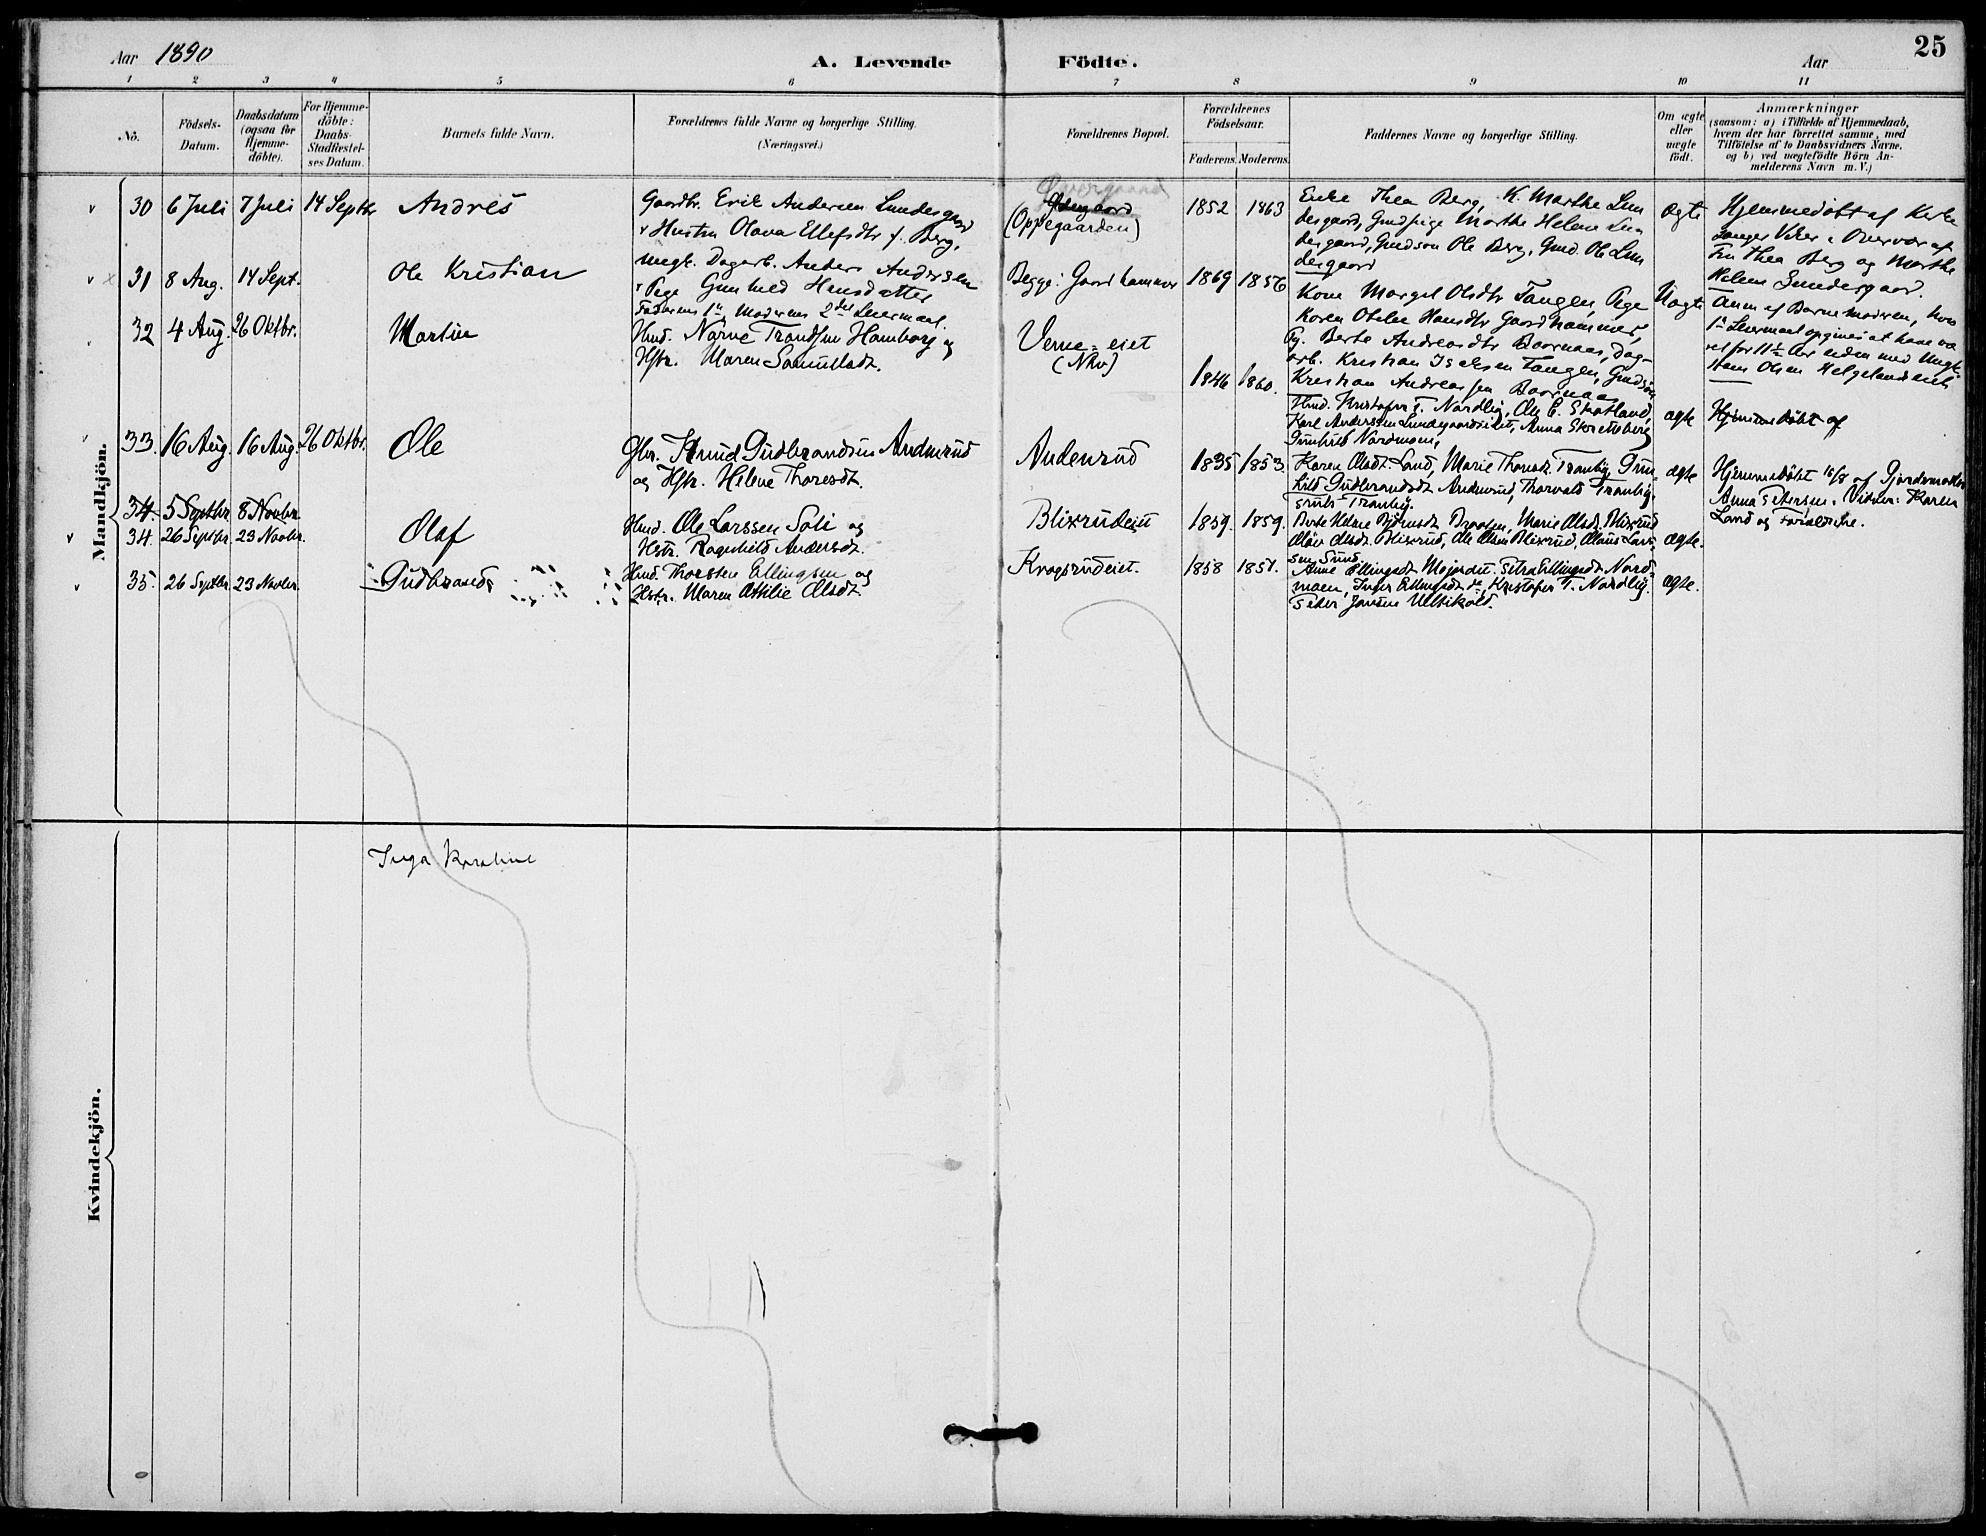 25
Aar 1890
A. Levende Födte.
Aar
1 2 3 4 5 6 7 8 9 10 11
No.
Födsels-
Datum.
Daabsdatum
(ogsaa for
Hjemme-
döbte).
For Hjemme-
döbte:
Daabs-
Stadfestel-
ses Datum.
Barnets fulde Navn.
Forældrenes fulde Navne og borgerlige Stilling.
(Næringsvei.)
Forældrenes Bopæl.
Forældrenes
Födselsaar.
Faderens. Moderens.
Faddernes Navne og borgerlige Stilling.
Om ægte
eller
uægte
födt.
Anmærkninger
(saasom: a) i Tilfælde af Hjemmedaab,
hvem der har forrettet samme, med
Tilföielse af to Daabsvidners Navne.
og b) ved uægtefödte Börn An-
melderens Navn m. V.)
Mandkjön.
30 6 Juli 7 Juli 14 Septbr Andres
Gaardbr. Erik Andersen Lundesgaard
& Hustru Olava Ellefsdtr f. Berg.
(Oppegaarden)
1852 1863
Enke Thea Berg, K. Marthe Lun
desgaard, Gmdpige Marthe Helene Lun
desgaard, Gmdson Ole Berg, Gmd. Ole Lun
desgaard
ægte
Hjemmedöbt af Kirke
sanger Viker i Overvær af
Fru Thea Berg og Marthe
Helene Lundesgaard.
31 8 Aug. 14 Sept. Ole Kristian
Ungk. Dagarb. Anders Andersen
& Pige Gunhild Hansdatter
Faderens 1ste Moderens 2det Leiermaal.
Begge: Gaardhammer
1869 1856
Kone Margit Olsdtr Tangen, Pige
Karen Otelie Hansdtr Gaardhammer,
Pg. Berte Andreasdtr Baarnaas, Dag-
arb. Kristian Isaksen Tangen, Gmdsön
Kristian Andreassen Baarnaas
Uægte
Anm. af Barnemoderen, hvis
1ste Leiermaal opgives at have væ
ret for 11 1/2 Aar siden med Ungk.
Hans Olsen Helgelandseiet
32 4 Aug. 26 Oktbr. Martin
Hmd. Narve Trondsen Hamborg og
Hstr. Maren Samuelsdt.
Verne-eiet
(Nkv)
1846 1860.
Hmd. Kristofer T. Nordlig, Ole E. Skotland,
Karl Anderssen Lundesgaardseiet, Anna Skretteberg
Gunhild Nordmoen,
ægte
Hjemmedöbt af
33. 16 Aug. 16 Aug. 26 Oktbr. Ole
Gbr. Knud Gudbrandsen Andenrud
og Hstr. Helene Thoresdt.
Andenrud
1835 1853.
Karen Olsdt. Land, Marie Thorsdt. Tranby, Gun
hild Gudbrandsdt. Andenrud, Thorvald Tranby,
Tranby.
ægte
Hjemmedöbt 16/8 af Gjordemoder
Anna Petersen. Vidner: Karen
Land og Forældrene.
34. 5 Septbr 8 Novbr
34. 26 Septbr. 23 Novbr. Olaf
Hmd. Ole Larssen Soli og
Hstr. Ragnhild Andersdt.
Blixrudeiet
1859. 1859.
Berte Helene Björnsdt. Braaten, Marie Olsdt. Blixrud
Olöv Olsdt. Blixrud, Ole Olsen Blixrud, Olaus Lars-
sen Sund.
ægte.
35. 26 Septbr. 23 Novbr. Gudbrand
Hmd. Thorsten Ellingsen og
Hstr. Maren Athilie Olsdt.
Kragsrudeiet.
1858 1857.
Anne Ellingsdt. Moiordet. Sitra Ellingsdt. Nord-
moen, Inger Ellingsdt. do, Kristofer T. Nordlig.
Peder Jonsen Ulbikold.
ægte.
Kvindekjön.
Inga Karoline